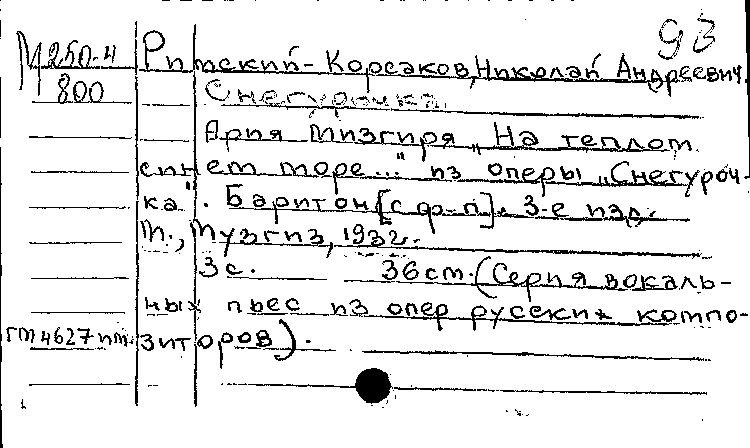 93
М250-4 Римский-Корсаков, Николай Андреевич.
800 Снегурочка.
Ария Мизгиря „На теплом
синем море..." из оперы „Снегуроч-
ка". Баритон [с ф-п]. 3-е изд.
М., Музгиз, 1932.
3 с. 36 см. (Серия вокаль-
ных пьес из опер русских компо-
зиторов).